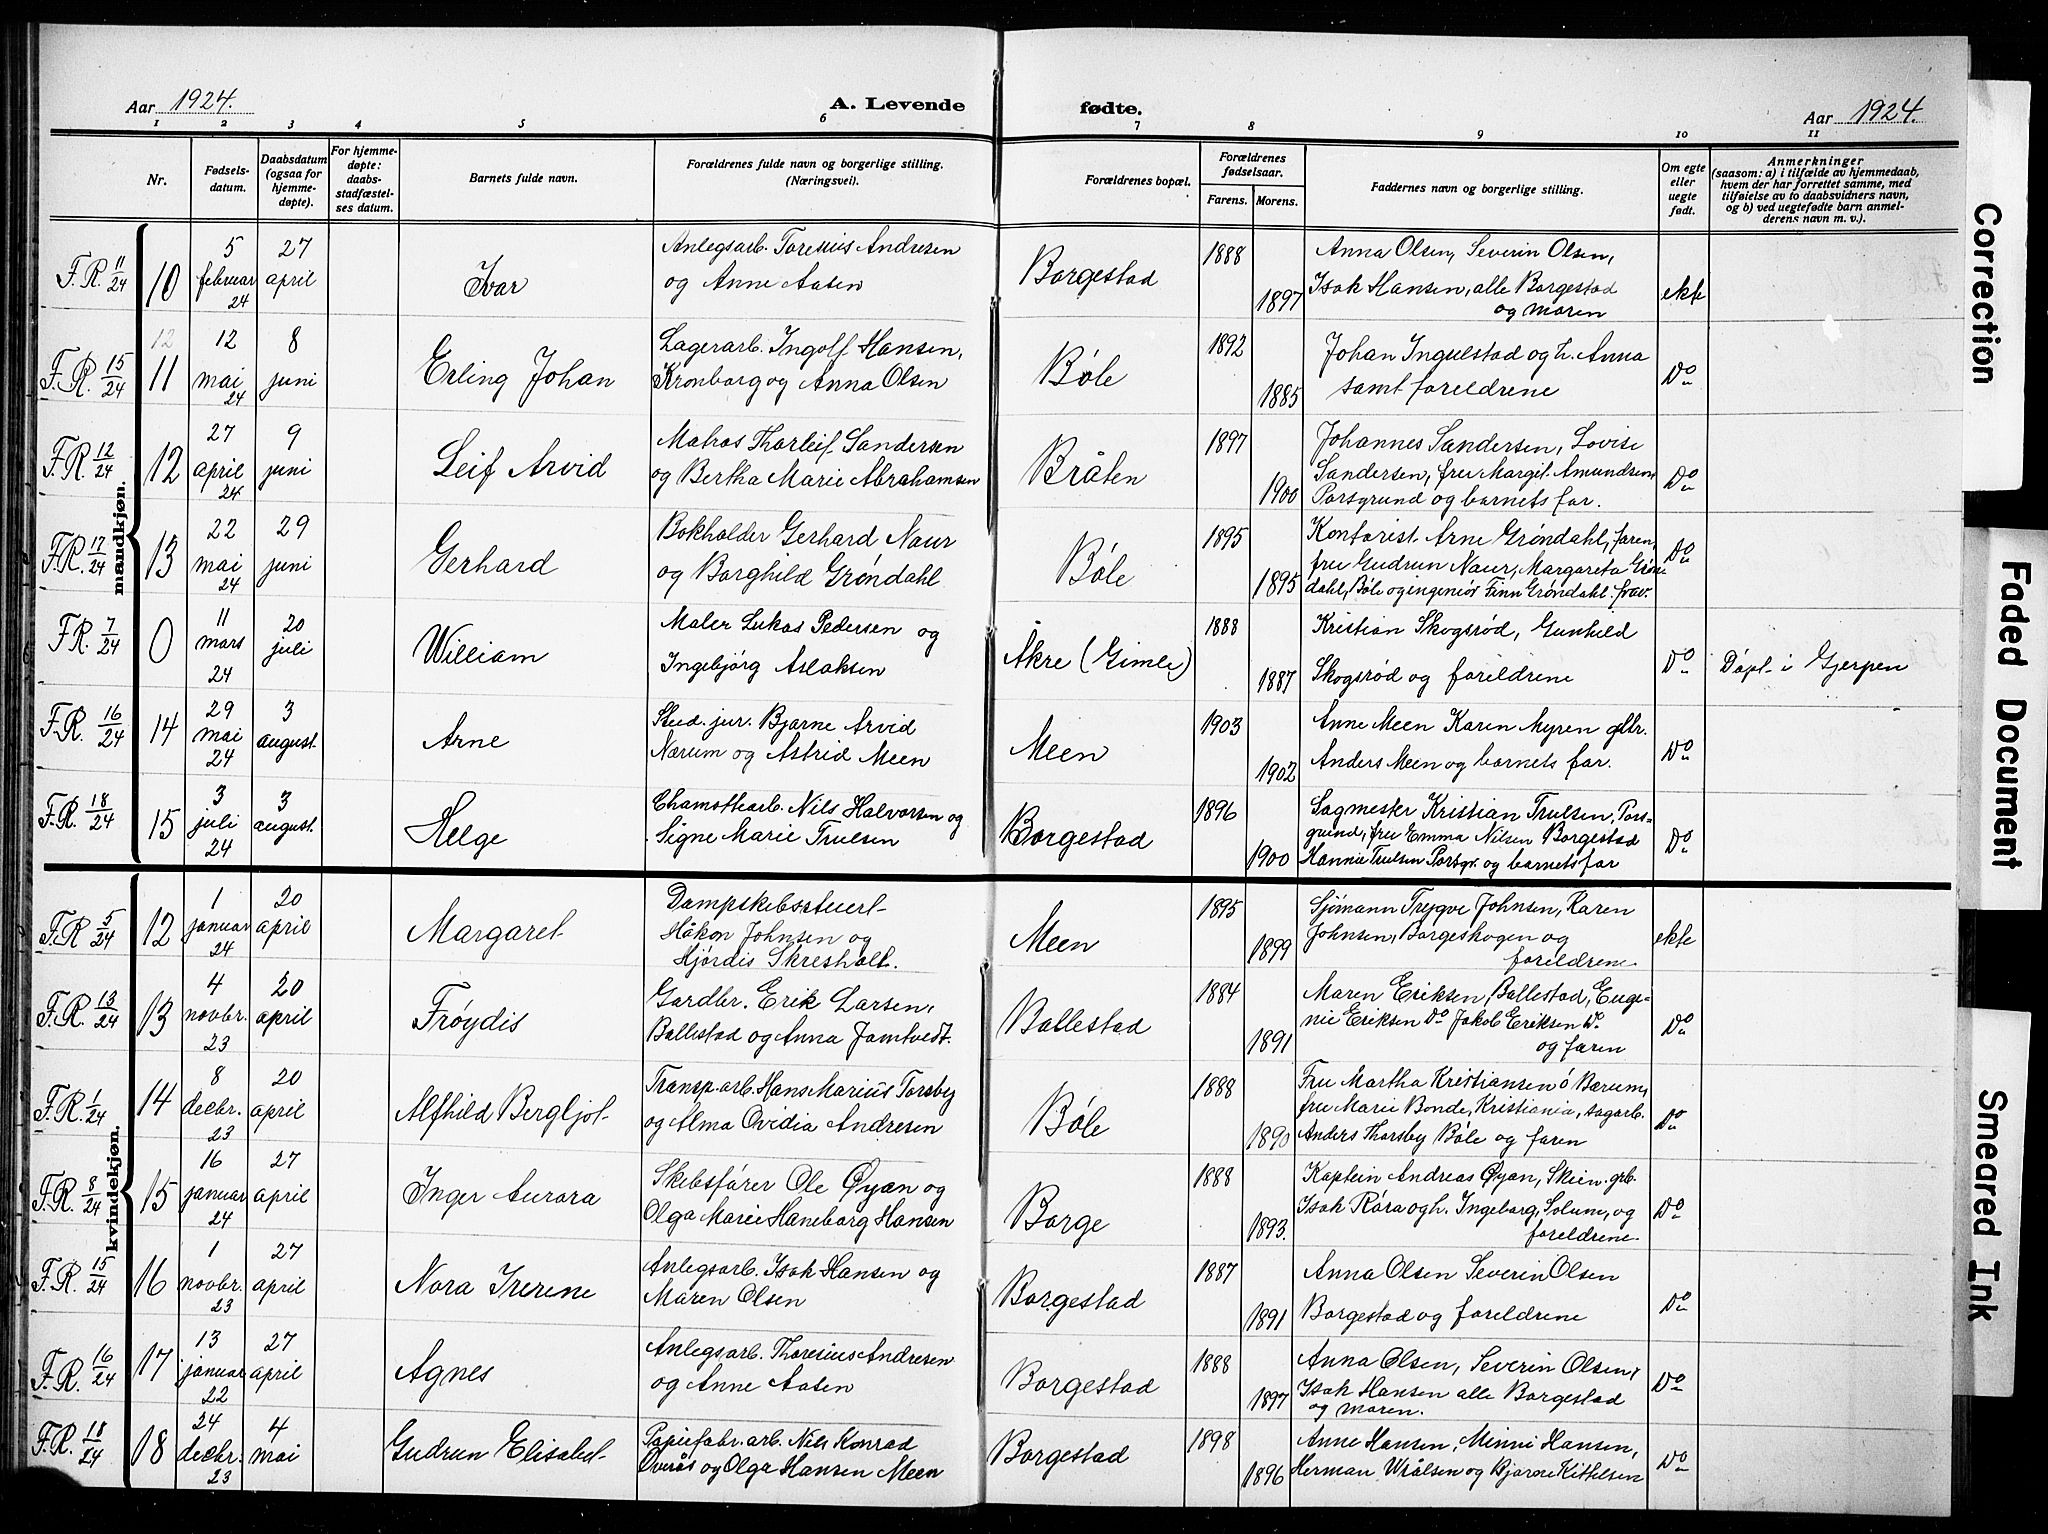 Aar 1924.
A. Levende fødte.
Aar 1924.
1 2 3 4 5 6 7 8 9 10 11
Nr.
Fødsels-
datum.
Daabsdatum
(ogsaa for
hjemme-
døpte).
For hjemme-
døpte:
daabs-
stadfæstel-
ses datum.
Barnets fulde navn.
Forældrenes fulde navn og borgerlige stilling.
(Næringsvei).
Forældrenes bopæl.
Forældrenes
fødselsaar.
Farens. Morens.
Faddernes navn og borgerlige stilling.
Om egte
eller
uegte
født.
Anmerkninger
(saasom: a) i tilfælde av hjemmedaab,
hvem der har forrettet samme, med
tilføielse av to daabsvidners navn,
og b) ved uegtefødte barn anmel-
derens navn m. v.).
mandkjøn.
F.R. 11/24 10
5 februar 24
27 april
Ivar
Anlegsarb. Toresius Andresen
og Anne Aasen
Borgestad
1888
1897
Anna Olsen, Severin Olsen,
Isak Hansen, alle Borgestad
og moren
ekte
F.R. 15/24 12 11
12 mai 24
8 juni
Erling Johan
Lagerarb. Ingolf Hansen,
Kronborg og Anna Olsen
Bøle
1892
1885
Johan Ingulstad og h. Anna
samt foreldrene
Do
F.R. 12/24 12
27 april 24
9 juni
Leif Arvid
Matros Thorleif Sandersen
og Bertha Marie Abrahamsen
Bråten
1897
1900
Johannes Sandersen, Lovise
Sandersen, fru Margit Amundsen,
Porsgrund og barnets far.
Do
F.R. 17/24 13
22 mai 24
29 juni
Gerhard
Bokholder Gerhard Naur
og Borghild Grøndahl
Bøle
1895
1895
Kontorist Arne Grøndahl, faren,
fru Gudrun Naur, Margareta Grøn-
dahl, Bøle og ingeniør Finn Grøndahl. frav.
Do
F.R. 7/24 0
11 mars 24
20 juli
William
Maler Lukas Pedersen og
Ingebjörg Aslaksen
Åkre (Gimle)
1888
1887
Kristian Skogsrød, Gunhild
Skogsrød og foreldrene
Do
Døpt i Gjerpen
F.R. 16/24 14
29 mai 24
3 august
Arne
Stud. jur. Bjarne Arvid
Nærum og Astrid Meen
Meen
1903
1902
Anne Meen Karen Myren gbr.
Anders Meen og barnets far.
Do
F.R. 18/24 15
3 juli 24
3 august
Helge
Chamottearb. Nils Halvorsen og
Signe Marie Truelsen
Borgestad
1896
1900
Sagmester Kristian Truelsen, Pors-
grund, fru Emma Nilsen Borgestad
Hannie Truelsen Porsgr. og barnets far
Do
kvindekjøn.
F.R. 5/24 12
1 januar 24
20 april
Margaret
Dampskibsstuert
Håkon Johnsen og
Hjördis Skresholt.
Meen
1895
1899
Sjömann Trygve Johnsen, Karen
Johnsen, Borgeskogen og
foreldrene
ekte
F.R. 13/24 13
4 novbr. 23
20 april
Frøydis
Gardbr. Erik Larsen,
Ballestad og Anna Jomtvedt.
Ballestad
1884
1891
Maren Eriksen, Ballestad, Euge-
nie Eriksen Do Jakob Eriksen Do
og faren
Do
F.R. 1/24 14
8 decbr. 23
20 april
Alfhild Bergljot
Transp.arb. Hans Marius Torsby
og Alma Ovidia Andresen
Bøle
1888
1890
Fru Martha Kristiansen ö Bærum,
fru Marie Bonde, Kristiania, sagarb.
Anders Thorsby Bøle og faren
Do
F.R. 8/24 15
16 januar 24
27 april
Inger Aurora
Skibsfører Ole Øyan og
Olga Marie Haneborg Hansen
Borge
1888
1893.
Kaptein Andreas Øyan, Skien. grb.
Isak Røra og h. Ingeborg, Solum, og
foreldrene
Do
F.R. 15/24 16
1 novbr. 23
27 april
Nora Irerene
Anlegsarb. Isak Hansen og
Maren Olsen
Borgestad
1887
1891
Anna Olsen Severin Olsen
Borgestad og foreldrene
Do
F.R. 16/24 17
13 januar 22
27 april
Agnes
Anlegsarb. Thoresius Andresen
og Anne Aasen
Borgestad
1888
1897
Anna Olsen, Severin Olsen,
Isak Hansen alle Borgestad
og moren.
Do
F.R. 18/24 18
24 decbr. 23
4 mai
Gudrun Elisabet
Papirfabr. arb. Nils Konrad
Overås og Olga Hansen Meen
Borgestad
1898
1896
Anne Hansen, Minni Hansen,
Herman Wrålsen og Bjarne Kittelsen
Do
Correction
Faded Document
Smeared Ink